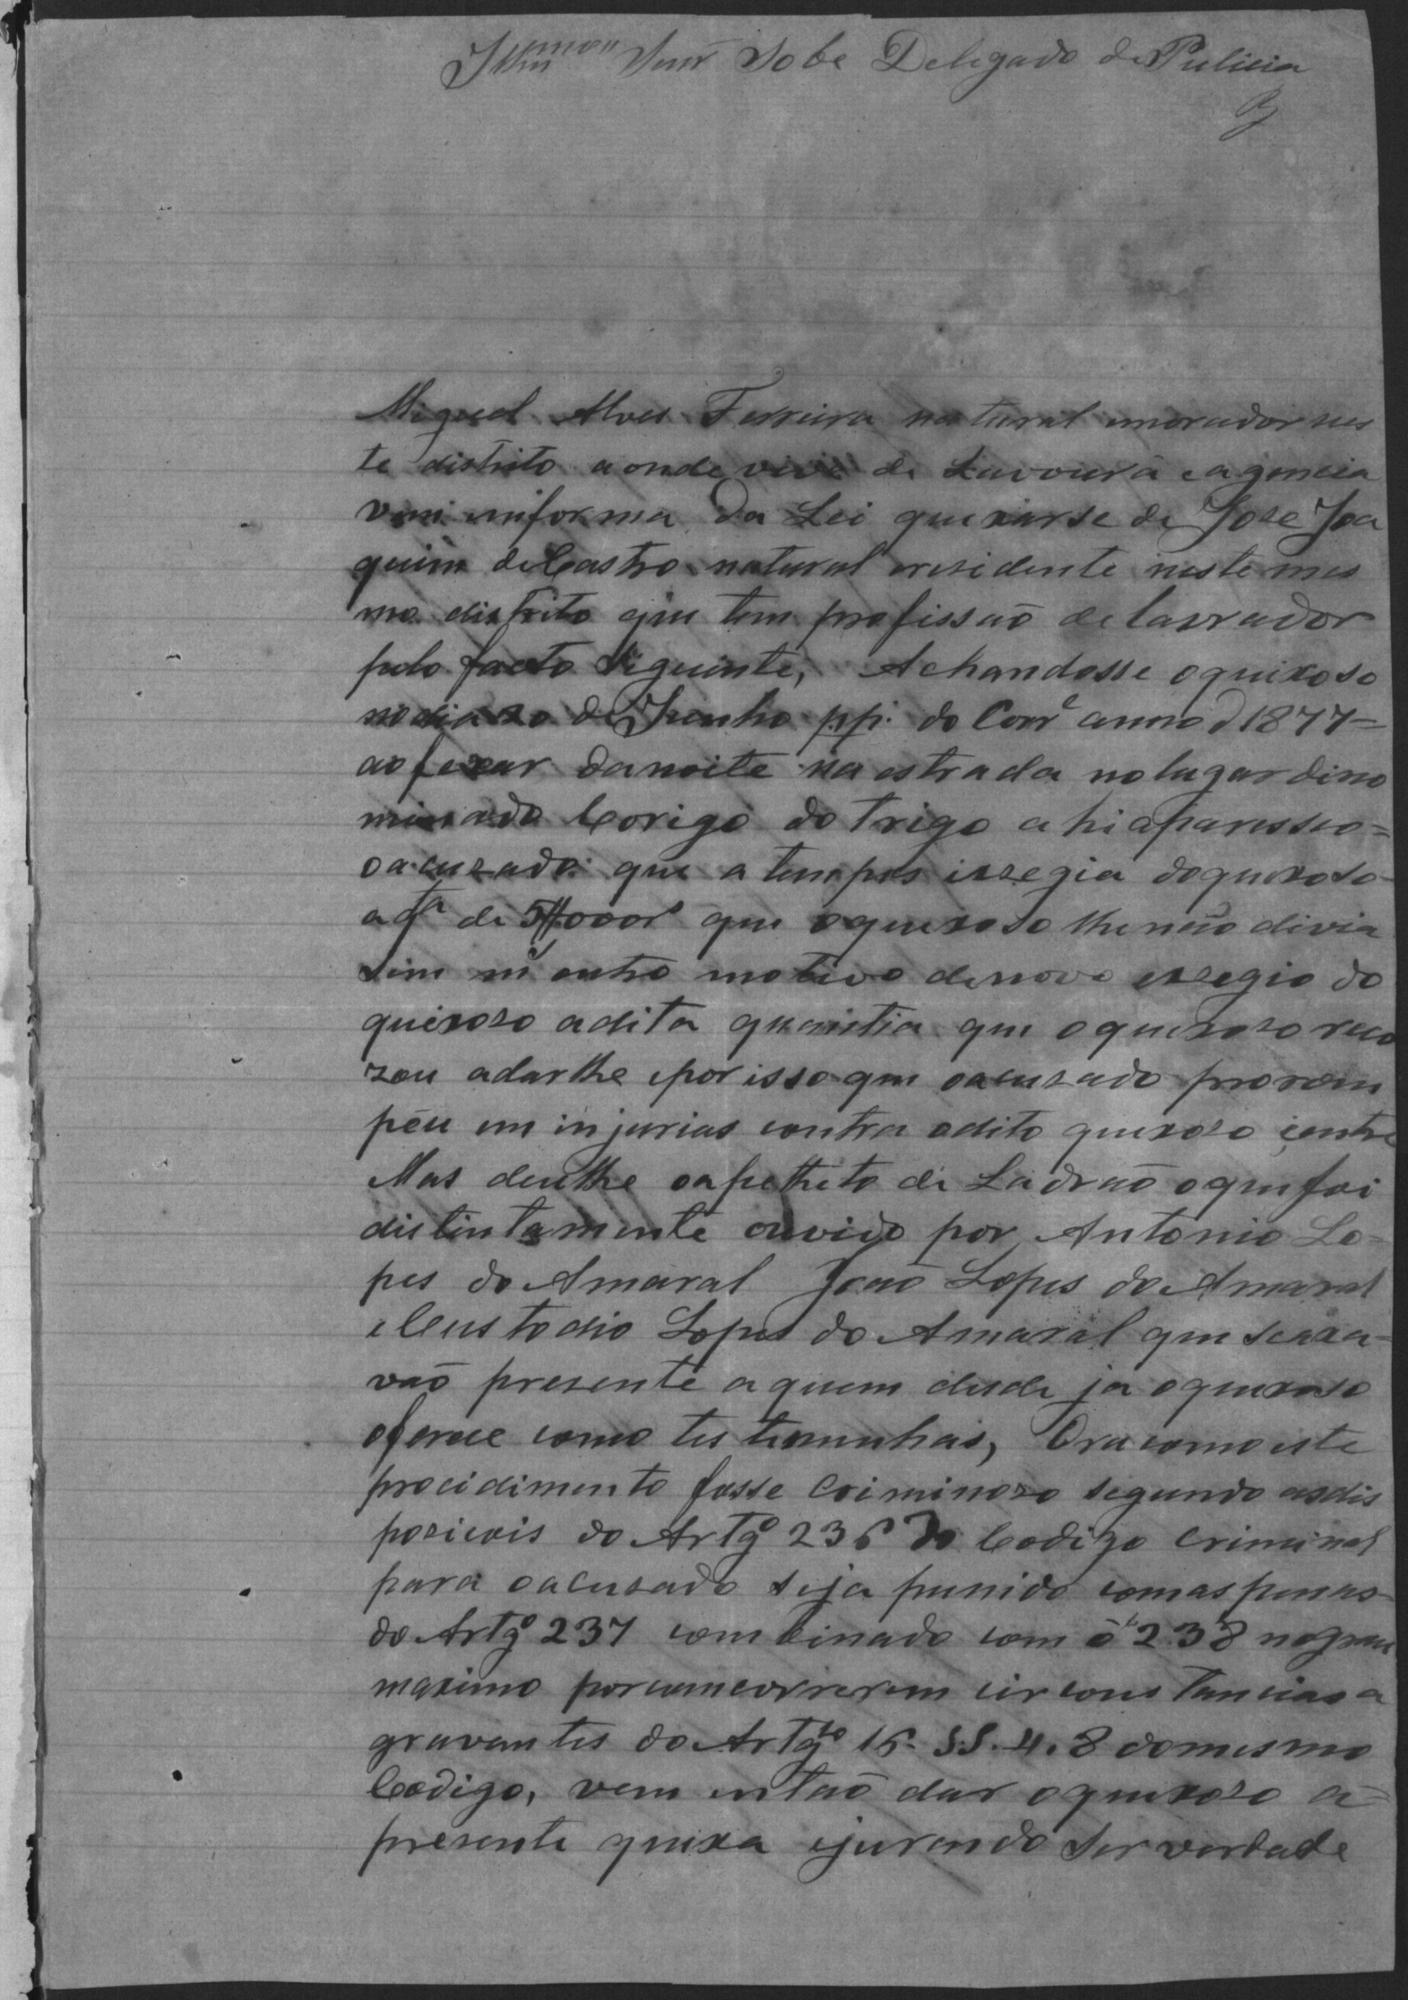 Illm.mo Senr Sobe Delegado de Pulicia
Miguel Alves Ferreira natural morador nes
te distrito aonde vive de Lavoura e agencia
vem emforma da Lei queixarse de Jose Joa
quim de Castro natural eresidente neste mes
mo distrito que tem profissaõ de lavrador
pelo facto siguinte, Achandosse o queixoso
no dia 20 de Junho p.p. do Corre anno d 1877=
ao fexar da noite na estrada no lugar dino
minado Corigo do trigo ahi aparesseo=
o acuzado que a tempos izegia do queixoso
a qta de 5$000rs que o queixoso lhe não divia
sem nẽ outro motivo de novo exegio do
queixoso a dita quantia que o queixozo recu
zou a darlhe e por isso que o acuzado prorom
peu em injurias contra o dito queixozo i entre
Mas deulhe o apelhito de Ladraõ o que foi
distintamente ouvido por Antonio Lo-
pes do Amaral Joaõ Lopes do Amaral
e Custodio Lopes do Amaral que seaxa-
vaõ presente a quem desde ja o queixoso
oferece como testemunhas, Ora como este
procidimento fosse Criminozo segundo as dis
poziçois do Artgo 236 do Codigo Criminal
para o acuzado seja punido com as penas
do Artgo 237 combinado com o 238 no grau
maximo por comcorrerem circonstancias a
gravantes do Artgo 16. §.§. 4. 8 do mesmo
Codigo, vem entaõ dar o queixozo a=
presente queixa e jurando ser verdade